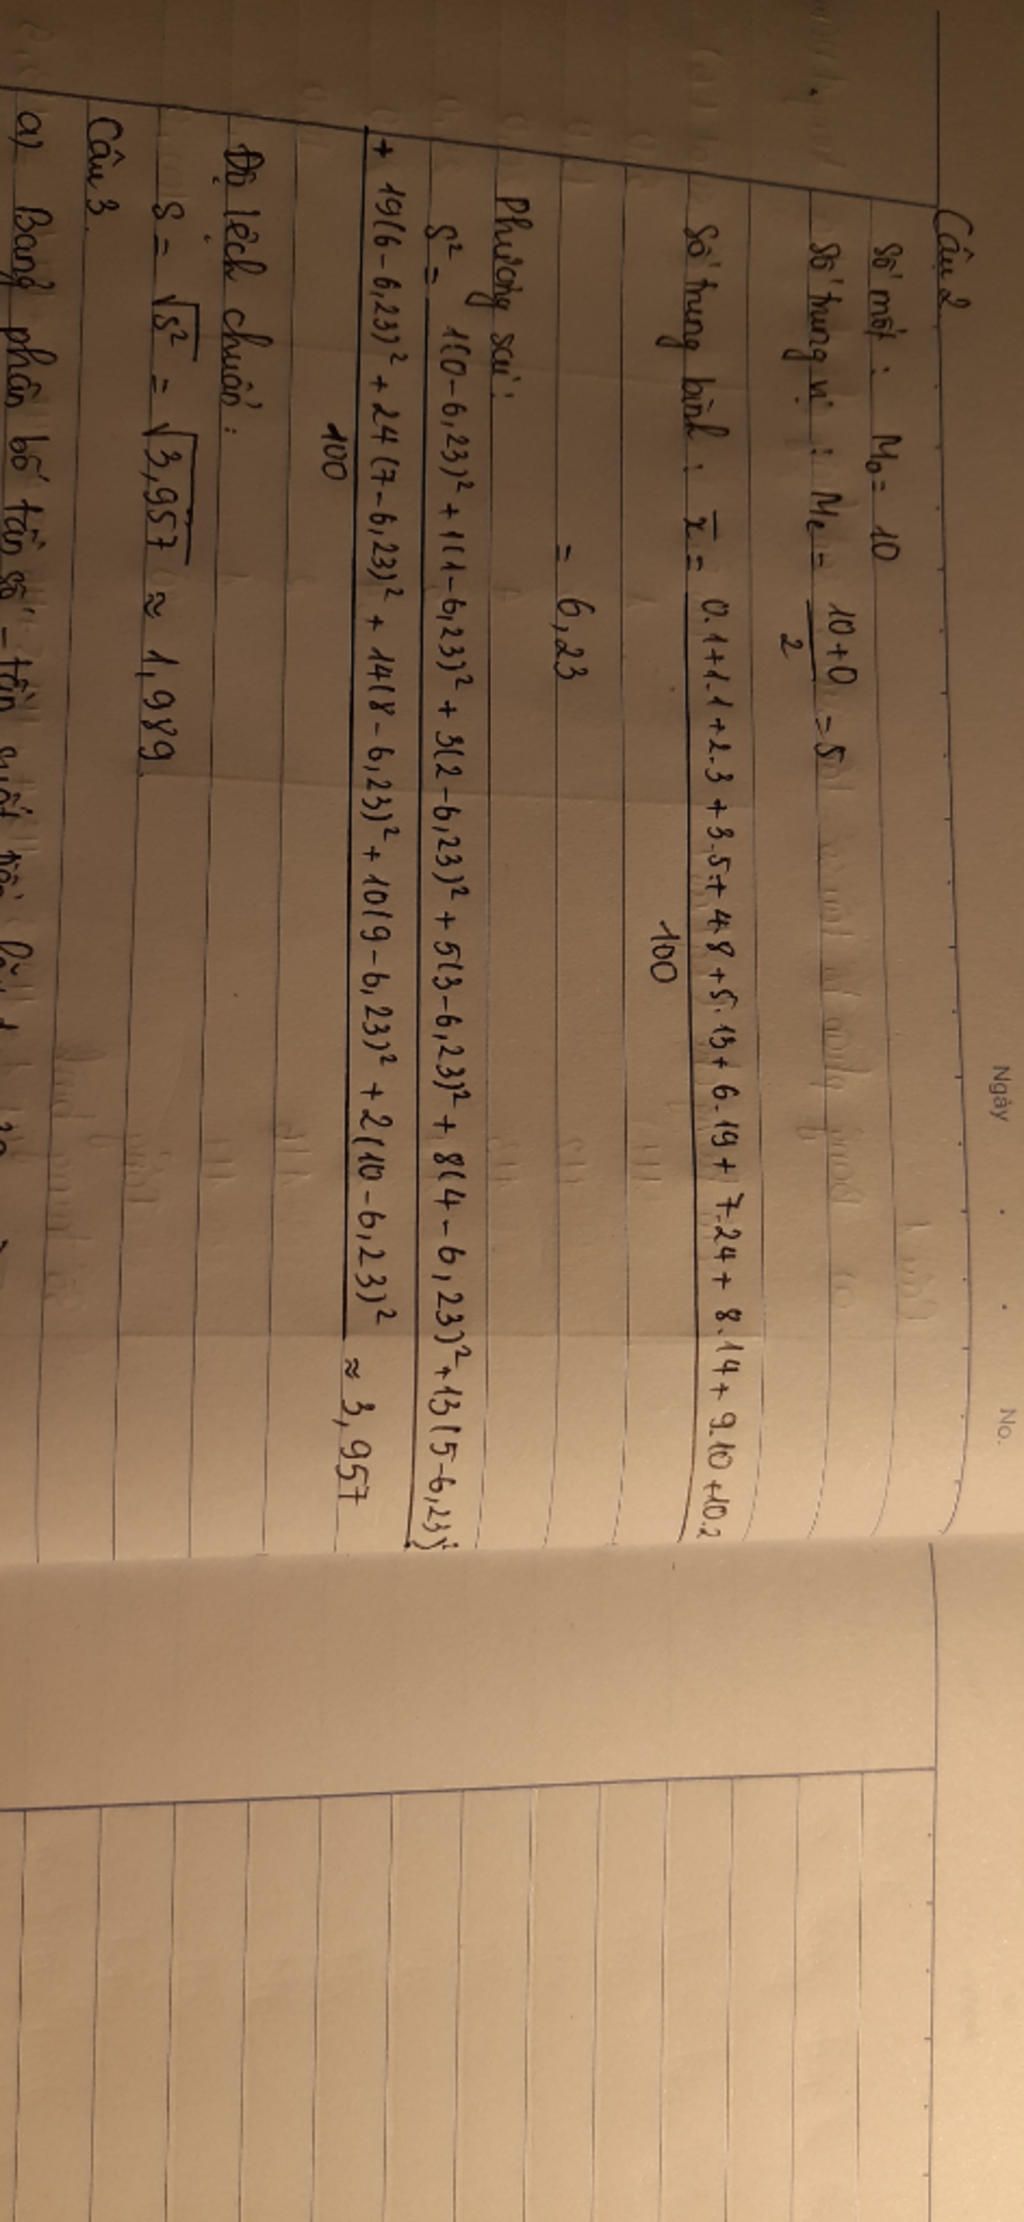 Ngày . . No.
Câu 2
Số mốt : M₀ = 10
Số trung vị : Me = (10+0)/2 = 5
Số trung bình : x̄ = (0.1+1.1+2.3+3.5+4.8+5.13+6.19+7.24+8.14+9.10+10.2)/100
= 6,23
Phương sai :
S² = 1(0-6,23)² + 1(1-6,23)² + 3(2-6,23)² + 5(3-6,23)² + 8(4-6,23)² + 13(5-6,23)²
+ 19(6-6,23)² + 24(7-6,23)² + 14(8-6,23)² + 10(9-6,23)² + 2(10-6,23)² ≈ 3,957
100
Độ lệch chuẩn :
S = √S² = √3,957 ≈ 1,989.
Câu 3
a) Bảng phân bố tần số - tần